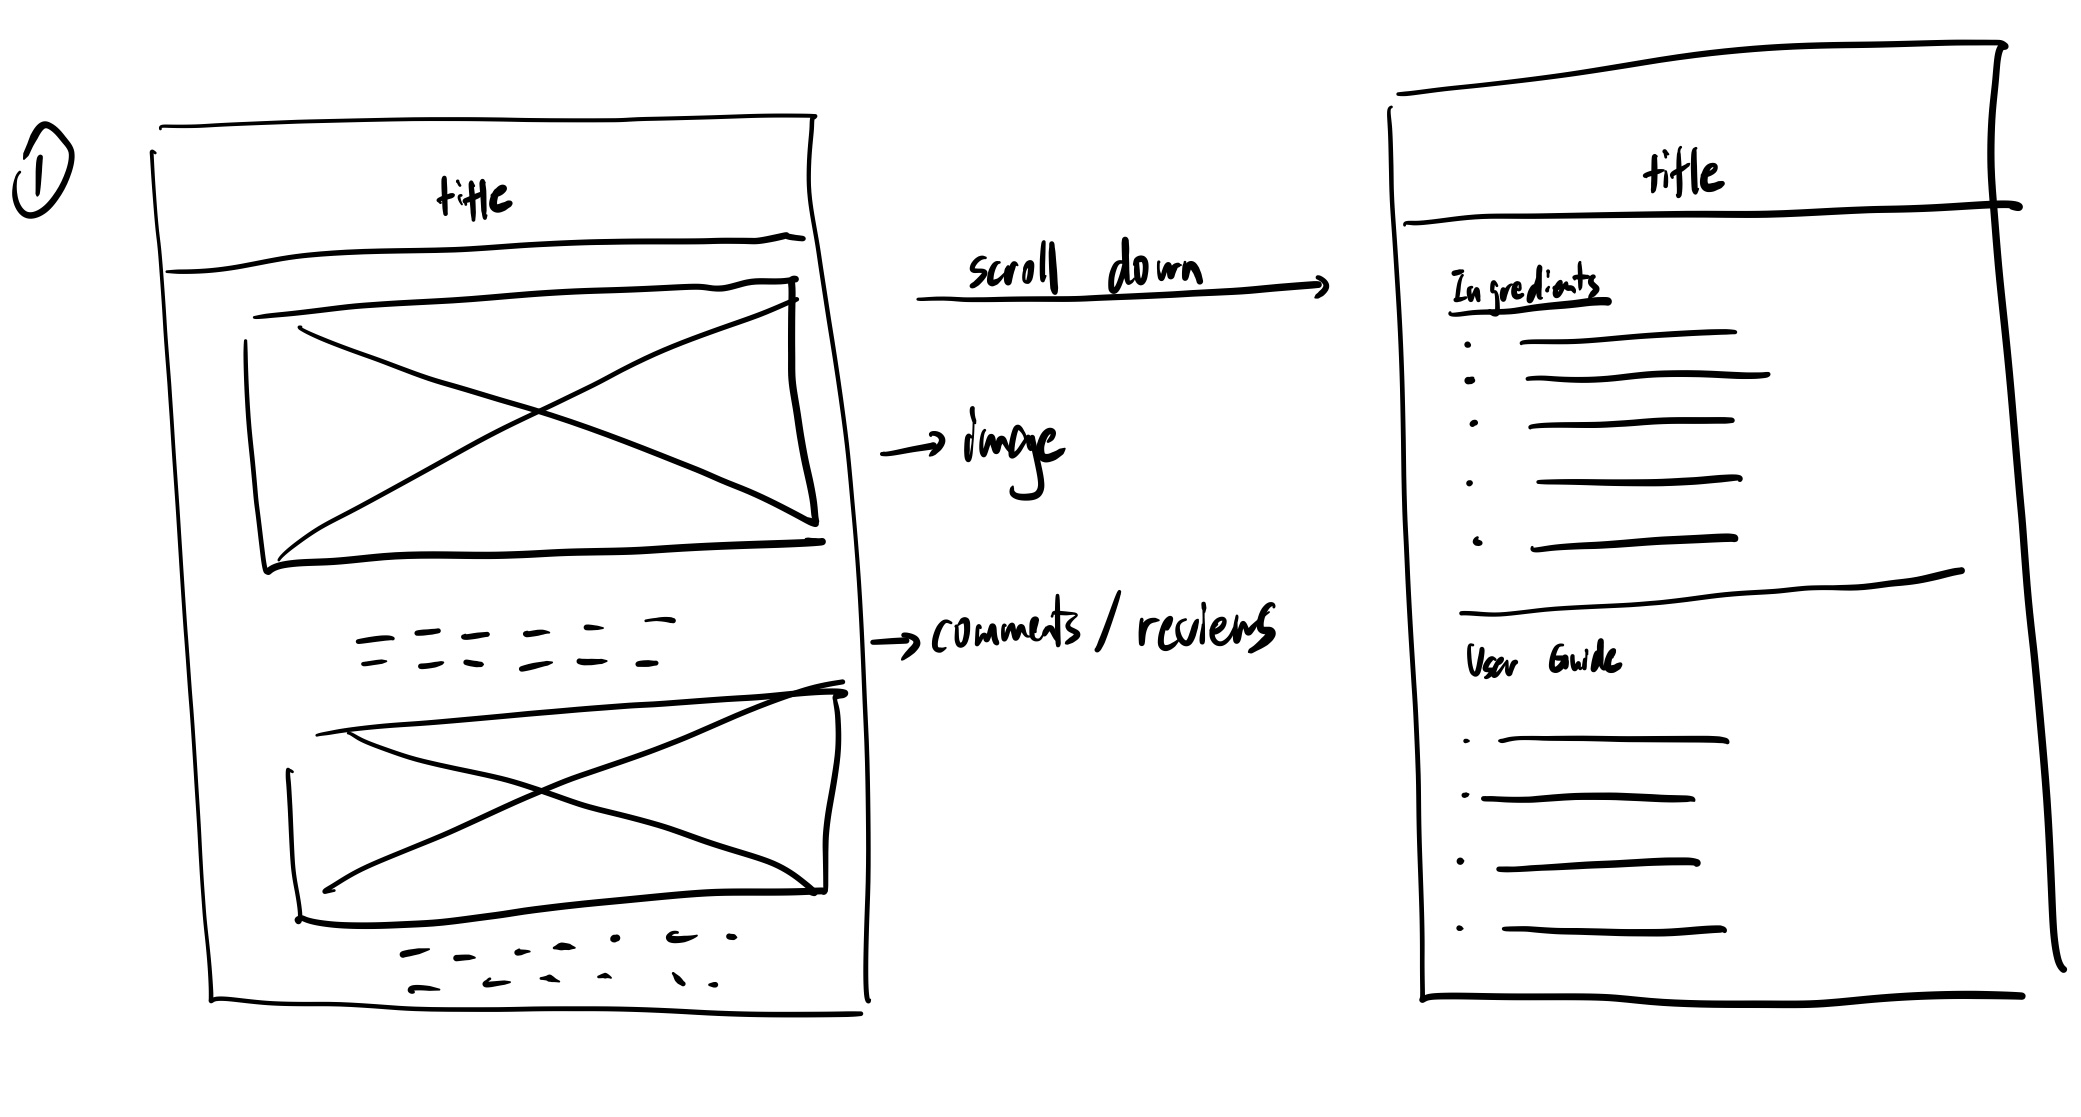 ①
title
scroll down
image
comments / reviews
title
Ingredients
User Guide